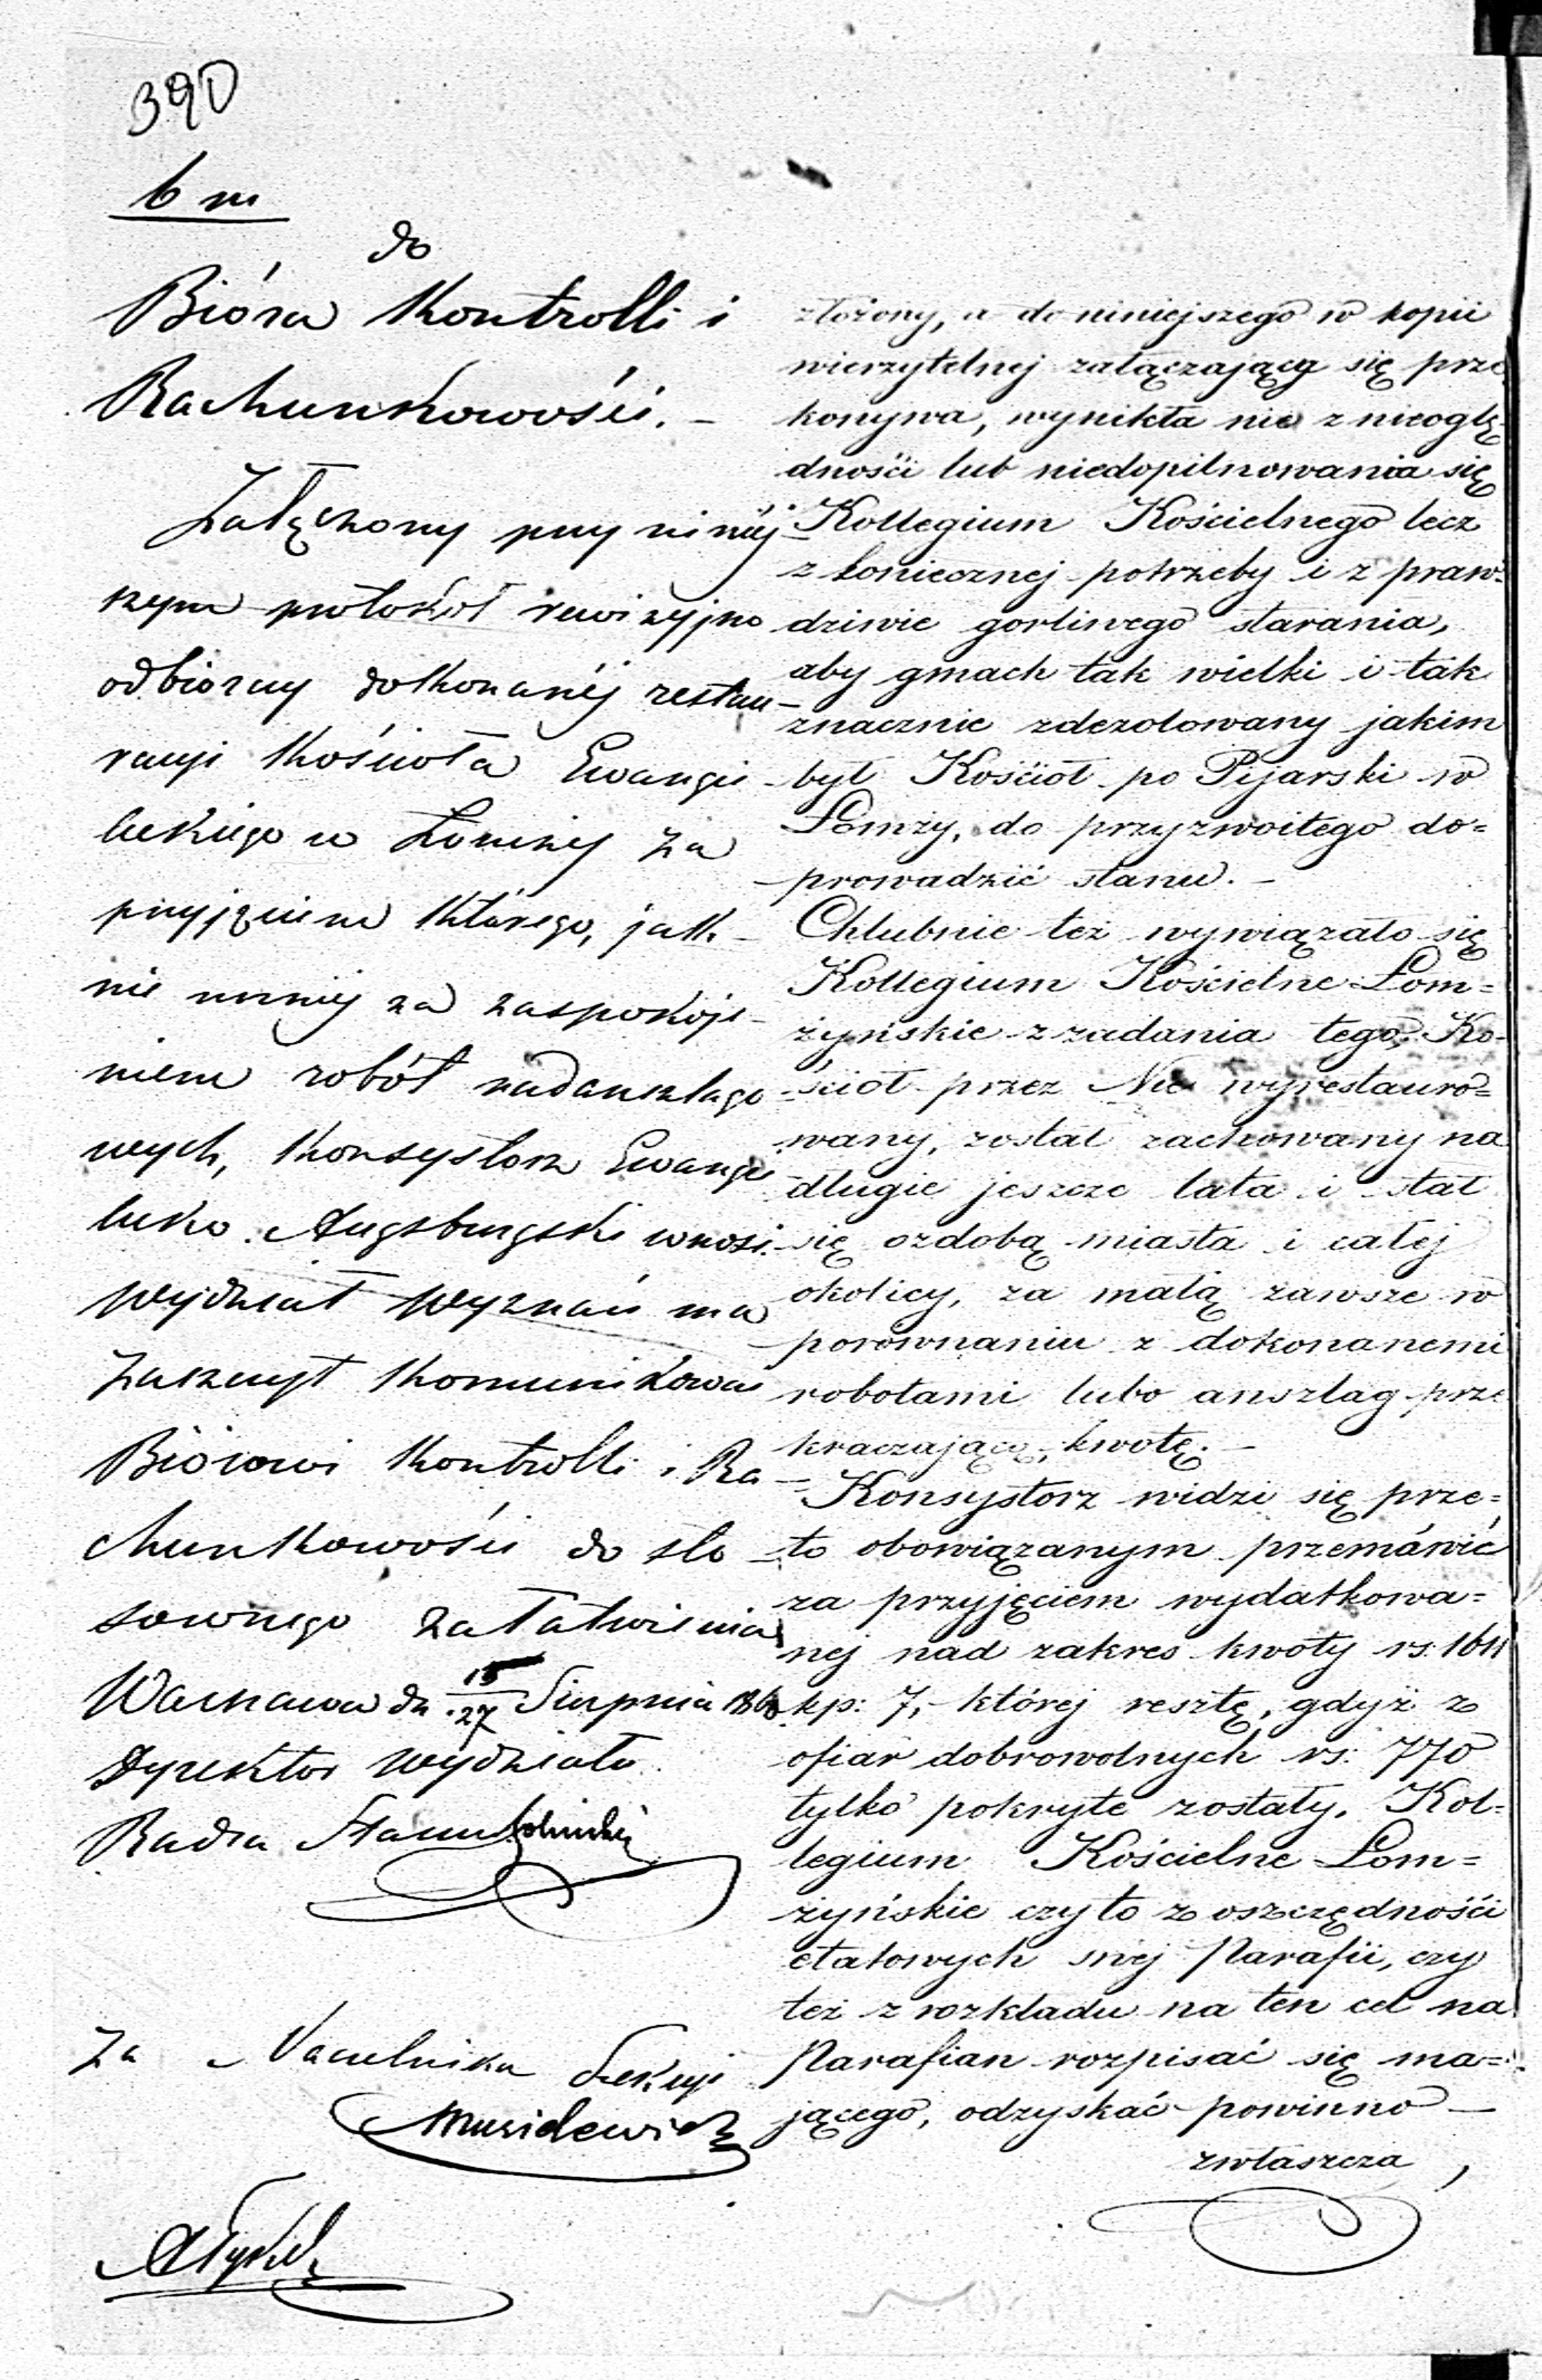 390
6 m
do
Bióra Kontrolli i
Rachunkowości. –
Załączony przy niniéj
szym protokół rewizyjno
odbiorczy dokonanéj restau–
racyi Kościoła Ewangie–
lickiego w Łomży za
przyjęciem którego, jak–
nie mniéj za zaspokoje–
niem robót nadanszlago–
wych, Konsystorz Ewangie
licko Augsburgski wnosi.
Wydział Wyznań ma
zaszczyt komunikować
Biórowi Kontrolli i Ra–
chunkowości do sto–
sownego załatwienia
Warszawa dn. 15/27 Sierpnia
Dyrektor Wydziału
Radca Stanu
Za Naczelnika Sekcyi
złożony, a do niniejszego w kopii
wierzytelnej załączający się prze
konywa, wynikła nie z nieoglę
dności lub niedopilnowania się
Kollegium Kościelnego lecz
z koniecznej potrzeby i z praw=
dziwie gorliwego starania,
aby gmach tak wielki i tak
znacznie zdezolowany jakim
był Kościół po Pijarski w
Łomży, do przyzwoitego do=
prowadzić stanu. –
Chlubnie też wywiązało się
Kollegium Kościelne Łom=
żyńskie z zadania tego, Ko=
ściół przez Nie wyrestauro=
wany, został zachowany na
długie jeszcze lata i stał
się ozdobą miasta i całej
okolicy, za małą zawsze w
porównaniu z dokonanemi
robotami lubo anszlag prze
kraczającą, kwotę. –
Konsystorz widzi się prze=
to obowiązanym przemówić
za przyjęciem wydatkowa=
nej nad zakres kwoty rs. 1611
kp: 7, której resztę, gdyż z
ofiar dobrowolnych rs: 770
tylko pokryte zostały, Kol=
legium Kościelne Łom=
żyńskie czy to z oszczędności
etatowych swej Parafii, czy
też z rozkładu na ten cel na
Parafian rozpisać się ma=
jącego, odzyskać powinno –
zwłaszcza